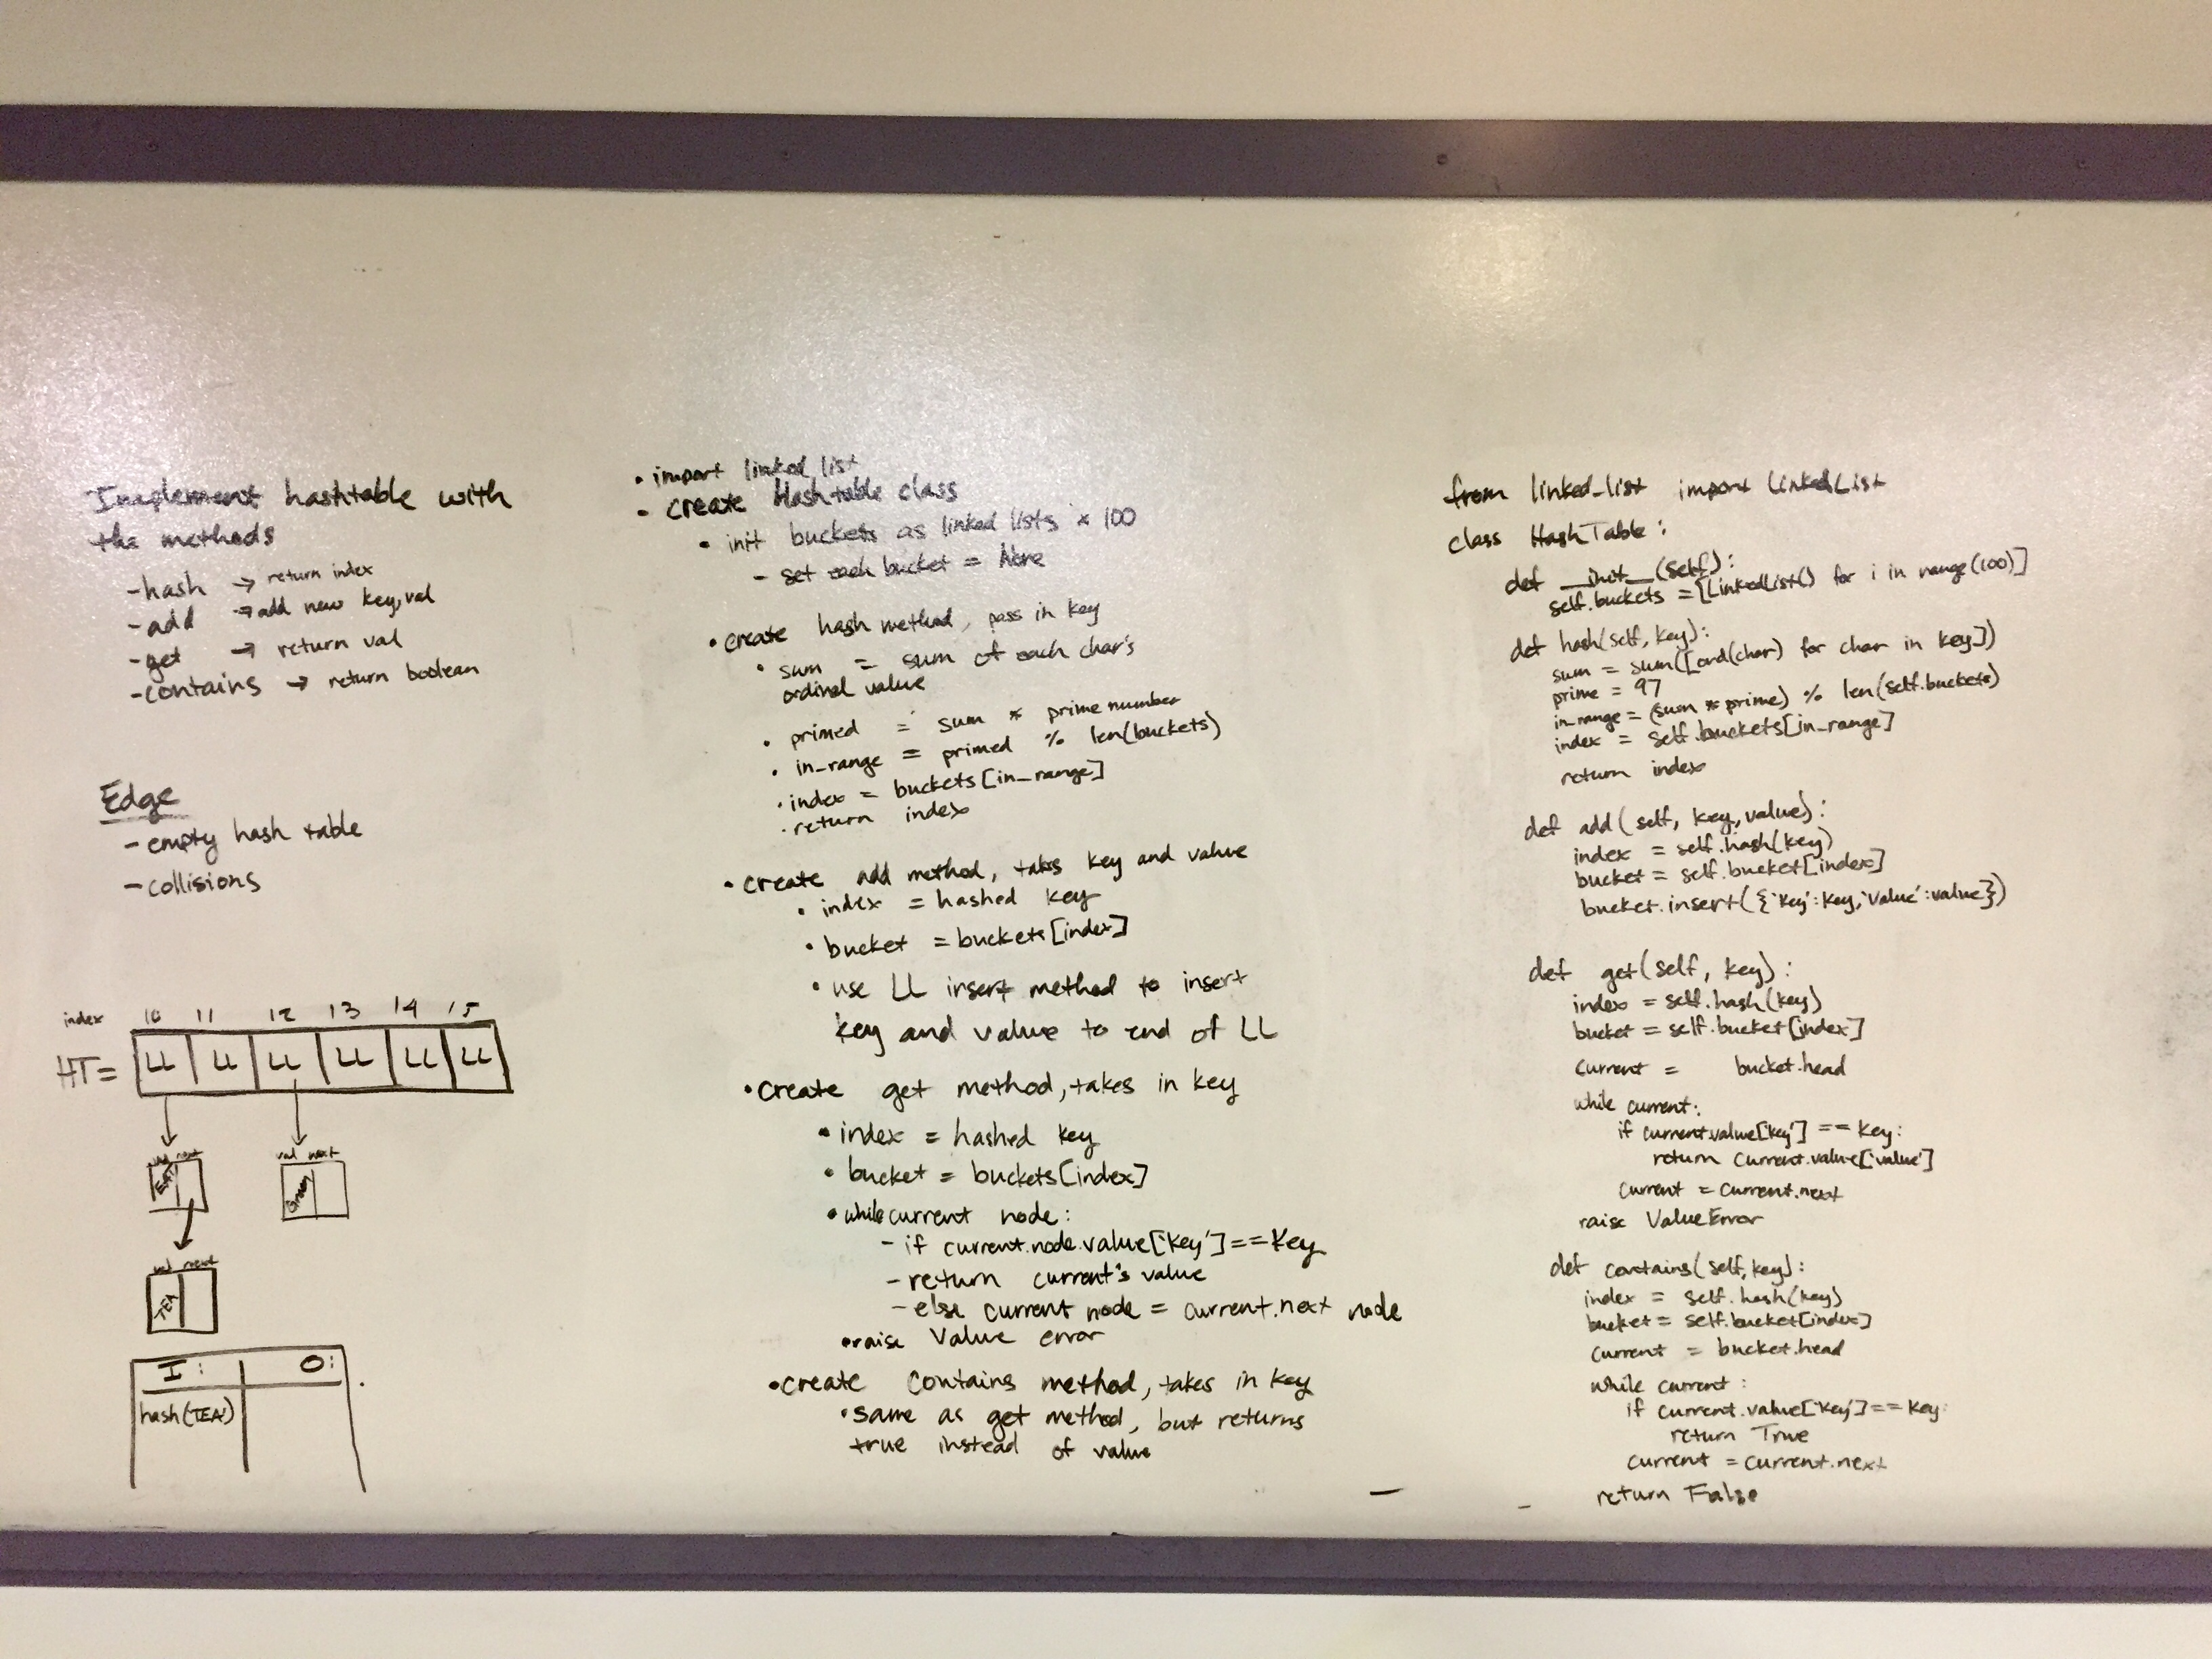 Implement hashtable with
the methods
-hash → return index
-add → add new key,val
-get → return val
-contains → return boolean
Edge
-empty hash table
-collisions
index 10 11 12 13 14 15
HT= LL LL LL LL LL LL
val next
val next
TEA
I: O:
hash(TEA)
• import linked list
- create Hashtable class
• init buckets as linked lists × 100
- set each bucket = None
• create hash method, pass in key
• sum = sum of each char's
ordinal value
• primed = sum * prime number
• in_range = primed % len(buckets)
• index = buckets[in_range]
• return index
• create add method, takes key and value
• index = hashed key
• bucket = buckets[index]
• use LL insert method to insert
key and value to end of LL
• create get method, takes in key
• index = hashed key
• bucket = buckets[index]
• while current node:
- if current.node.value['key']==key
- return current's value
- else current node = current.next node
• raise Value error
• create contains method, takes in key
• same as get method, but returns
true instead of value
from linked_list import LinkedList
class HashTable:
def __init__(self):
self.buckets = [LinkedList() for i in range(100)]
def hash(self, key):
sum = sum([ord(char) for char in key])
prime = 97
in_range = (sum * prime) % len(self.buckets)
index = self.buckets[in_range]
return index
def add(self, key, value):
index = self.hash(key)
bucket = self.bucket[index]
bucket.insert({'key':key,'value':value})
def get(self, key):
index = self.hash(key)
bucket = self.bucket[index]
current = bucket.head
while current:
if current.value['key'] == key:
return current.value['value']
current = current.next
raise ValueError
def contains(self,key):
index = self.hash(key)
bucket = self.bucket[index]
current = bucket.head
while current:
if current.value['key']==key:
return True
current = current.next
return False